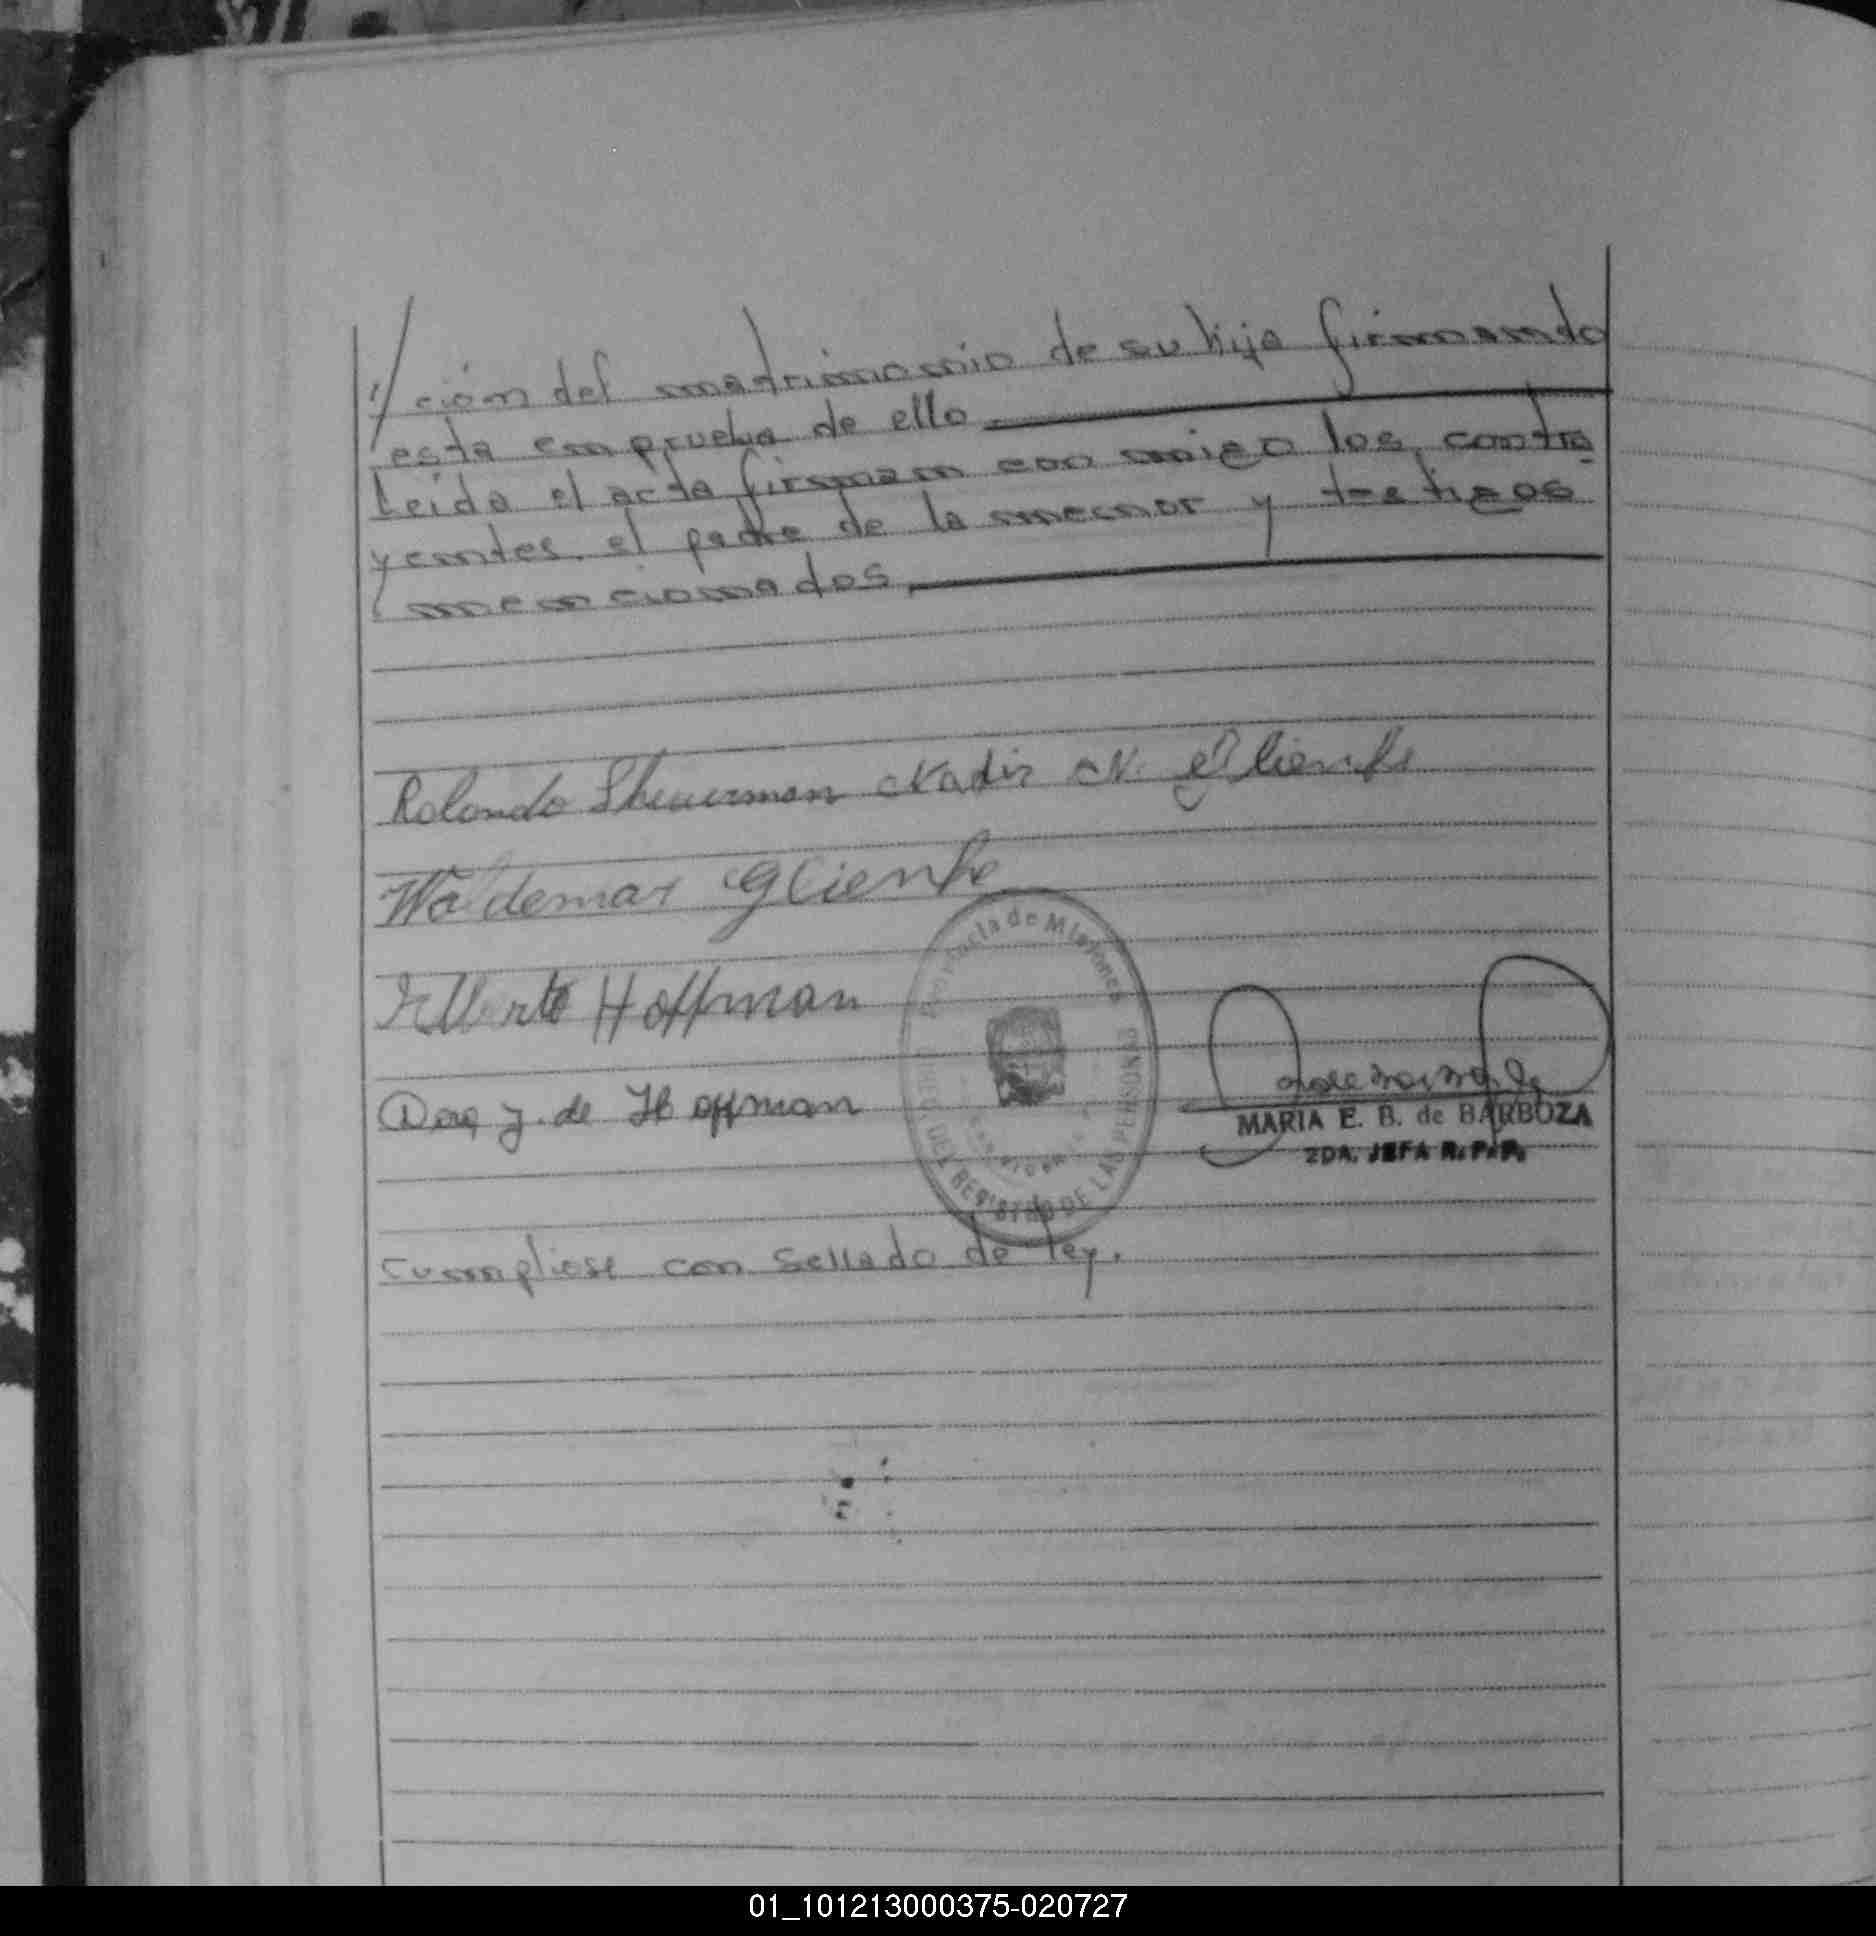 //ción del matrimonio de su hija firmando
esta en prueba de ello
Leída el acta firman con migo los contra
yentes. el padre de la menor y testigos
mencionados.
Rolando Sheuerman Nadir N. Glienke
Waldemar Glienke
Alberto Hoffman
Provincia de Misiones
DEL REGISTRO DE LAS PERSONAS
Dora J. de Hoffman
MARIA E. B. de BARBOZA
2DA. JEFA R. P. P.
Cumpliose con sellado de ley.
01_101213000375-020727